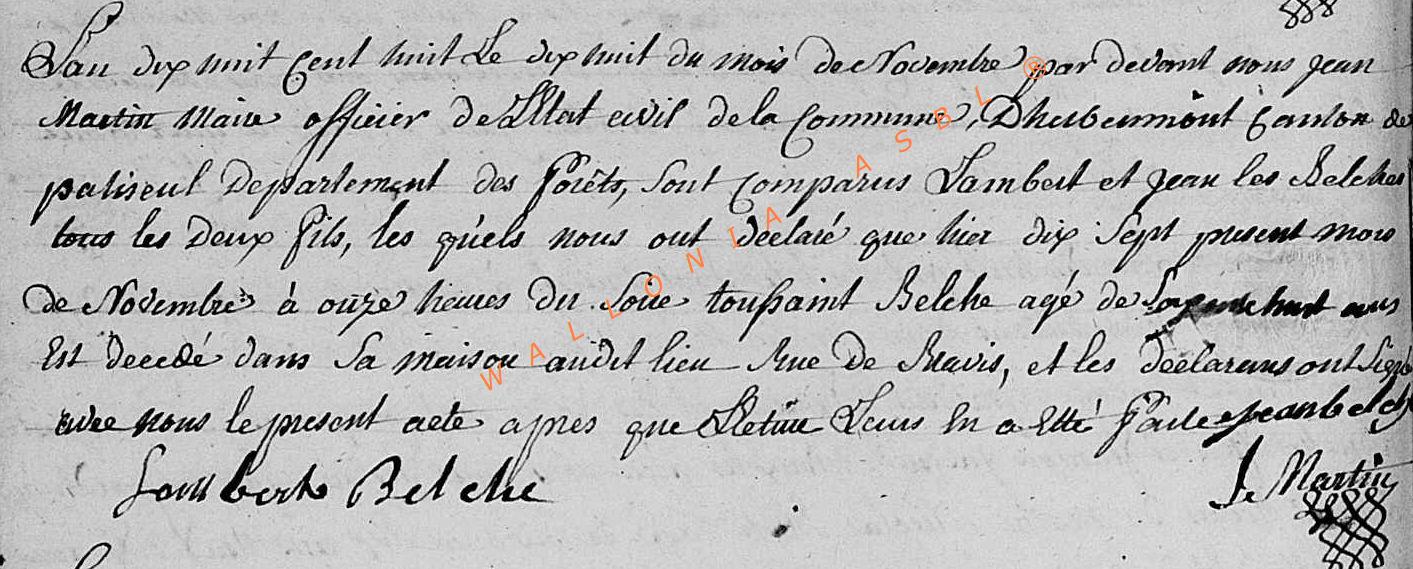 L'an dix huit Cent huit Le dix huit du mois de Novembre par devant nous jean
Martin Maire officier de L'Etat civil de la Commune, D'herbeumont Canton de
paliseul Departement des Forêts, sont comparus Lambert et jean les Belches
tous les Deux fils, les quèls nous ont déclaré que hier dix sept present mois
de Novembre à onze heures du Soire toussaint Belche agé de ans
Est decedé dans sa maison audit lieu Rue de et les déclarans ont signé
avec nous le present acte apres que Lecture Leurs En a Etté Faite jean belche
Lambert Belche
Je Martin
WALLONIA ASBL ®